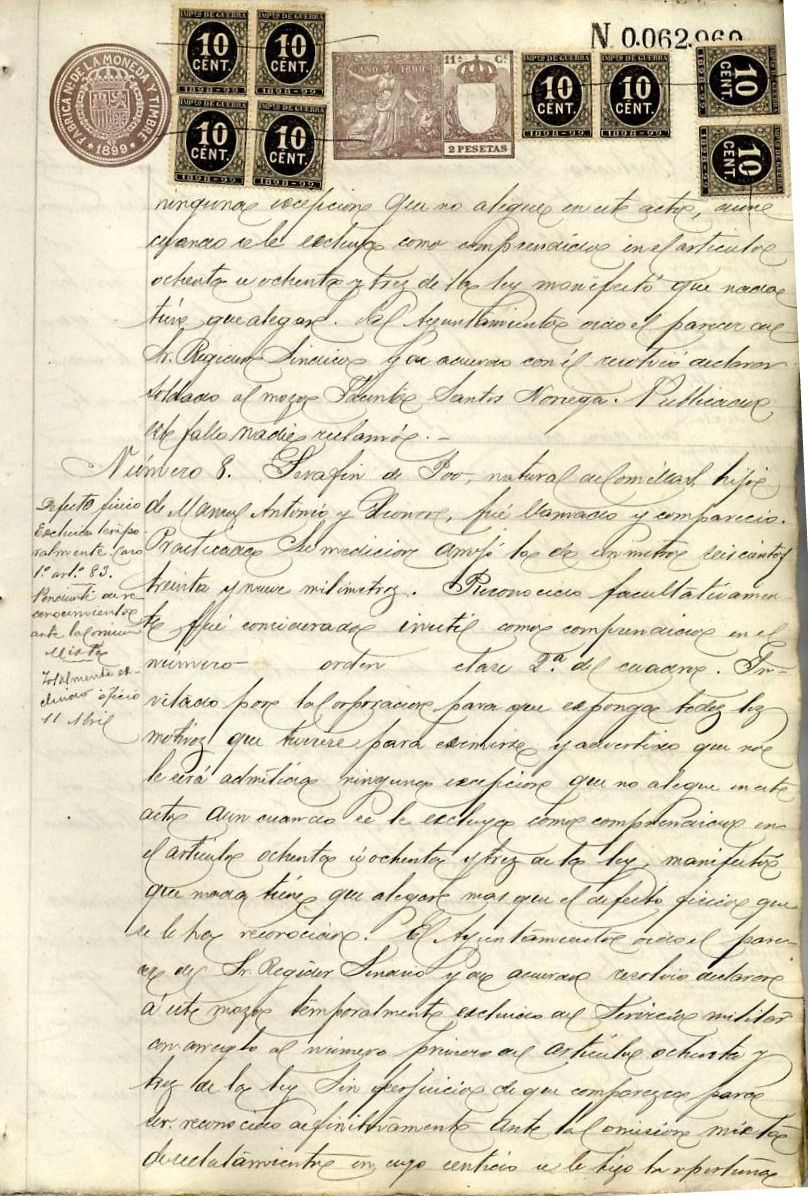 N 0.062.960
FABRICA NL DE LA MONEDA Y TIMBRE
* 1899 *
IMPTO DE GUERRA
10
CENT.
1898-99
IMPTO DE GUERRA
10
CENT.
1898-99
IMPTO DE GUERRA
10
CENT.
1898-99
IMPTO DE GUERRA
10
CENT.
1898-99
AÑO 1899
11ª Cª
2 PESETAS
IMPTO DE GUERRA
10
CENT.
1898-99
IMPTO DE GUERRA
10
CENT.
1898-99
IMPTO DE GUERRA
10
CENT.
1898-99
10
CENT.
1898-99
ninguna escepcion que no alegue en este acto, aun
cuando se le excluya como comprendido en el articulo
ochenta u ochenta y tres de la ley manifestó que nada
tiene que alegar. El Ayuntamiento oido el parecer del
Sr. Regidor Sindico y de acuerdo con él resolvió declarar
soldado al mozo Santos Noriega. Publicado
este fallo nadie reclamó.-
Número 8. Serafin de Poo, natural de Comillas, hijo
de Manuel Antonio y Leonor, fué llamado y compareció.
Practicada su medicion arrojó la de un metro seiscientos
treinta y nueve milimetros. Reconocido facultativamen-
te fué considerado inutil como comprendido en el
número- orden clase 2ª del cuadro. In-
vitado por la Corporacion para que esponga todos los
motivos que tuviere para eximirse y advertido que no
le será admitida ninguna escepcion que no alegue en este
acto aun cuando se le excluya como comprendido en
el artículo ochenta u ochenta y tres de la ley, manifestó
que nada tiene que alegar mas que el defecto fisico que
se le ha reconocido. El Ayuntamiento oido el pare-
cer del Sr. Regidor Sindico y de acuerdo resolvió declarar
á este mozo temporalmente excluido del Servicio militar
con arreglo al número primero del articulo ochenta y
tres de la ley sin perjuicio de que comparezca para
ser reconocido definitivamente ante la Comision mixta
de reclutamiento en cuyo sentido se le hizo la oportuna
Defecto fisico
Excluido tempo-
ralmente Caso
1º artº 83.
Pendiente de re-
conocimiento
ante la Comision
Mixta
Totalmente ex-
cluido oficio
11 Abril